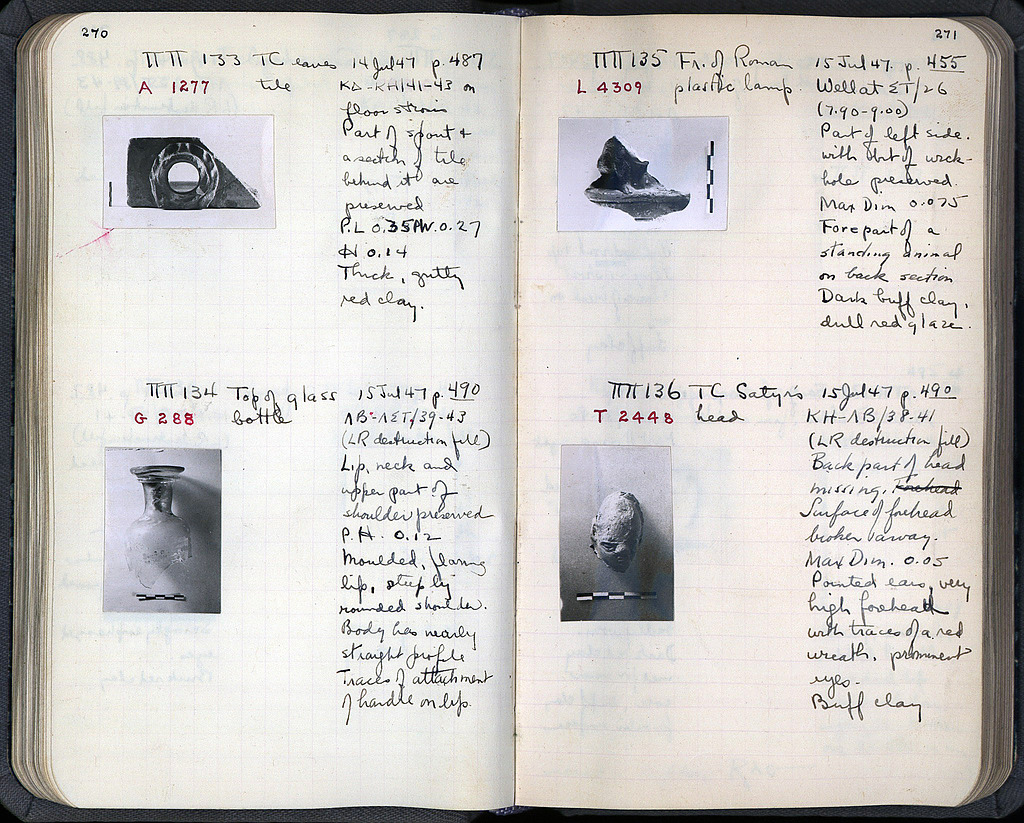 270
ΠΠ 133 TC eaves 14 Jul 47 p. 487
A 1277 tile ΚΔ-ΚΗ/41-43 on
floor strosis
Part of spout &
a section of tile
behind it are
preserved
P.L 0.35 P.W. 0.27
H 0.14
Thick, gritty
red clay.
ΠΠ 134 Top of glass 15 Jul 47 p. 490
G 288 bottle ΛΒ-ΛΣΤ/39-43
(LR destruction fill)
Lip, neck and
upper part of
shoulder preserved
P.H. 0.12
Moulded, flaring
lip, steeply
rounded shoulder.
Body has nearly
straight profile
Traces of attachment
of handle on lip.
271
ΠΠ 135 Fr. of Roman 15 Jul 47. p. 455
L 4309 plastic lamp. Well at ΣΤ/26
(7.90-9.00)
Part of left side.
with part of wick-
hole preserved.
Max Dim 0.075
Forepart of a
standing animal
on back section
Dark buff clay,
dull red glaze.
ΠΠ 136 TC Satyr's 15 Jul 47 p. 490
T 2448 head ΚΗ-ΛΒ/38-41
(LR destruction fill)
Back part of head
missing. Forehead
Surface of forehead
broken away.
Max Dim. 0.05
Pointed ears, very
high forehead
with traces of a red
wreath, prominent
eyes.
Buff clay